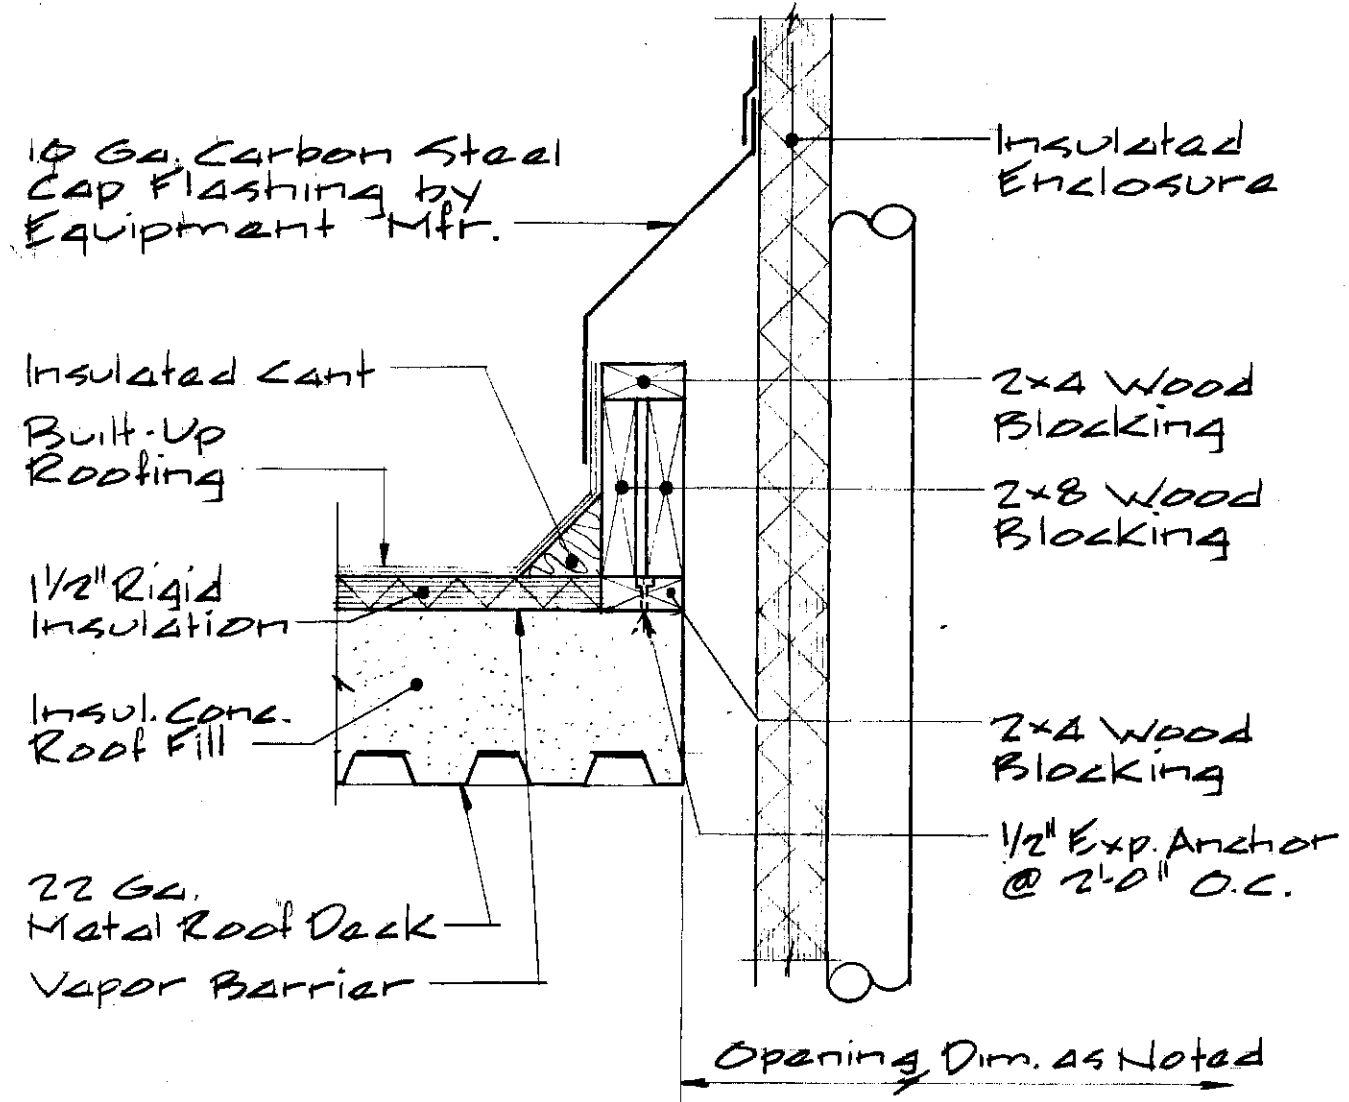 10 Ga. Carbon Steel
Cap Flashing by
Equipment Mfr.
Insulated Cant
Built-Up
Roofing
1 1/2" Rigid
Insulation
Insul. Conc.
Roof Fill
22 Ga.
Metal Roof Deck
Vapor Barrier
Insulated
Enclosure
2x4 Wood
Blocking
2x8 Wood
Blocking
2x4 Wood
Blocking
1/2" Exp. Anchor
@ 2'-0" O.C.
Opening Dim. as Noted